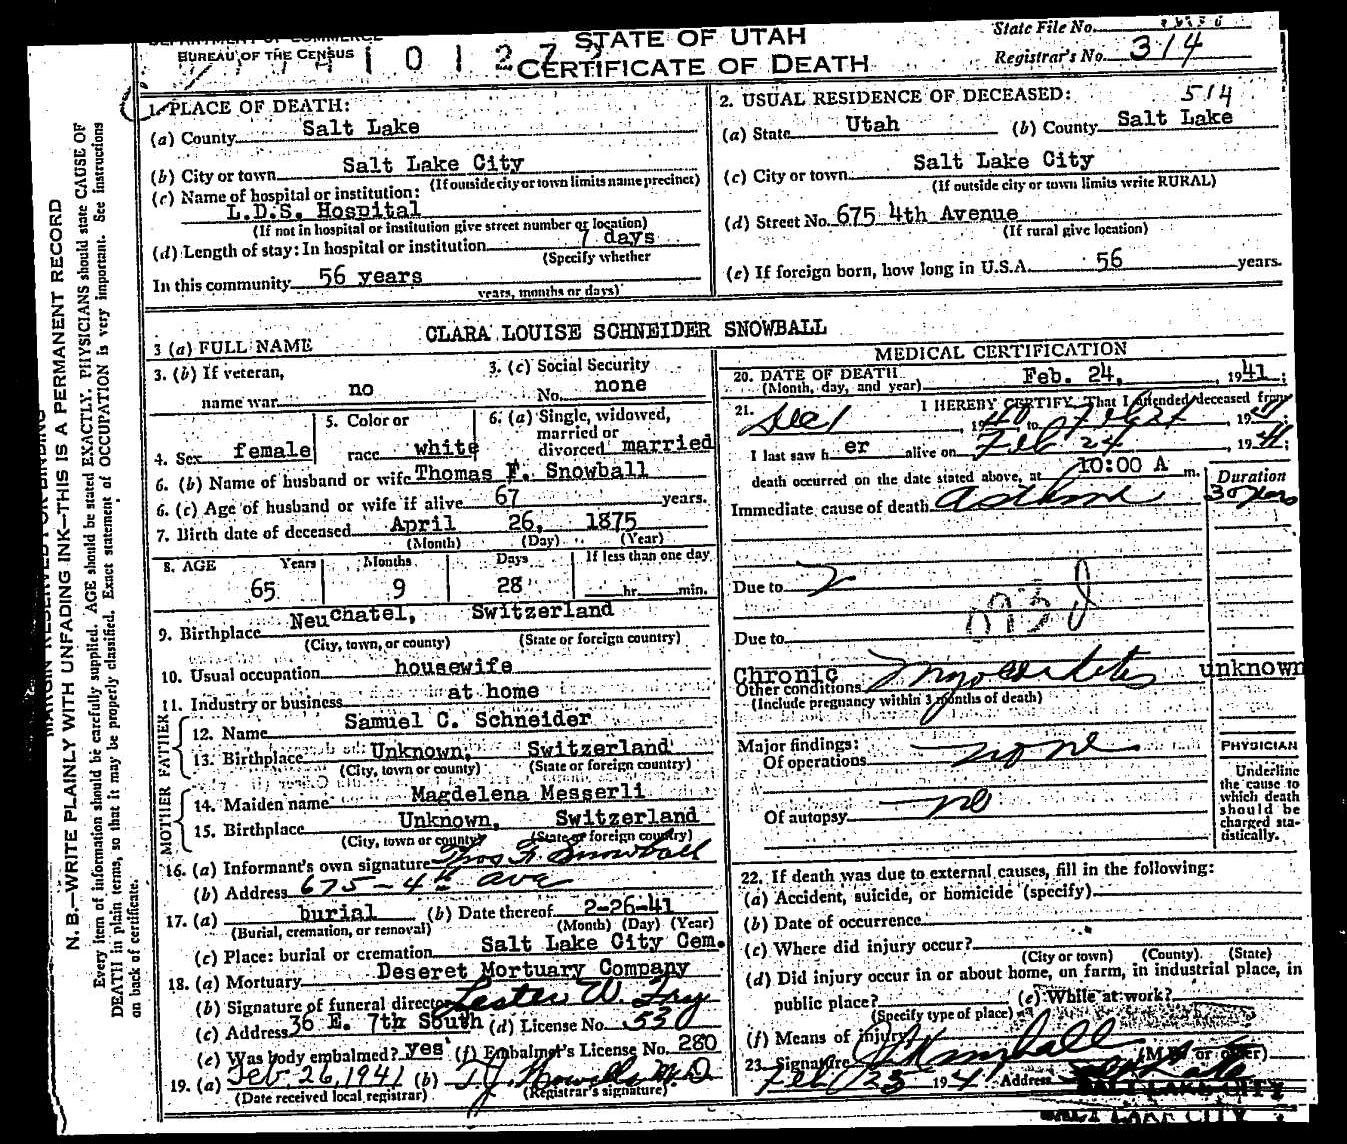 DEPARTMENT OF COMMERCE
BUREAU OF THE CENSUS
STATE OF UTAH
CERTIFICATE OF DEATH
State File No.
Registrar's No. 314
514
1. PLACE OF DEATH:
(a) County Salt Lake
(b) City or town Salt Lake City
(If outside city or town limits name precinct)
(c) Name of hospital or institution:
L.D.S. Hospital
(If not in hospital or institution give street number or location)
(d) Length of stay: In hospital or institution 7 days
(Specify whether
In this community 56 years
years, months or days)
2. USUAL RESIDENCE OF DECEASED:
(a) State Utah (b) County Salt Lake
(c) City or town Salt Lake City
(If outside city or town limits write RURAL)
(d) Street No. 675 4th Avenue
(If rural give location)
(e) If foreign born, how long in U.S.A. 56 years.
3 (a) FULL NAME CLARA LOUISE SCHNEIDER SNOWBALL
3. (b) If veteran,
name war no
3. (c) Social Security
No. none
4. Sex female
5. Color or
race white
6. (a) Single, widowed,
married or
divorced married
6. (b) Name of husband or wife Thomas F. Snowball
6. (c) Age of husband or wife if alive 67 years.
7. Birth date of deceased April 26, 1875
(Month) (Day) (Year)
8. AGE Years Months Days If less than one day
65 9 28 hr. min.
9. Birthplace Neuchatel, Switzerland
(City, town, or county) (State or foreign country)
10. Usual occupation housewife
11. Industry or business at home
FATHER
12. Name Samuel C. Schneider
13. Birthplace Unknown, Switzerland
(City, town or county) (State or foreign country)
MOTHER
14. Maiden name Magdelena Messerli
15. Birthplace Unknown, Switzerland
(City, town or county) (State or foreign country)
16. (a) Informant's own signature Thos F Snowball
(b) Address 675 - 4th ave
17. (a) burial (b) Date thereof 2-26-41
(Burial, cremation, or removal) (Month) (Day) (Year)
(c) Place: burial or cremation Salt Lake City Cem.
18. (a) Mortuary Deseret Mortuary Company
(b) Signature of funeral director Lester W. Fry
(c) Address 36 E. 7th South (d) License No. 530
(e) Was body embalmed? yes (f) Embalmer's License No. 280
19. (a) Feb. 26, 1941 (b) M.D.
(Date received local registrar) (Registrar's signature)
MEDICAL CERTIFICATION
20. DATE OF DEATH
(Month, day, and year) Feb. 24, 1941;
21. I HEREBY CERTIFY That I attended deceased from
Dec 1, 1940 to Feb 24, 1941
I last saw h er alive on Feb 24, 1941;
death occurred on the date stated above, at 10:00 A m.
Duration
Immediate cause of death asthma 30 years
Due to
Due to
Other conditions Chronic Myocarditis unknown
(Include pregnancy within 3 months of death)
Major findings:
Of operations none
Of autopsy no
PHYSICIAN
Underline
the cause to
which death
should be
charged sta-
tistically.
22. If death was due to external causes, fill in the following:
(a) Accident, suicide, or homicide (specify)
(b) Date of occurrence
(c) Where did injury occur?
(City or town) (County) (State)
(d) Did injury occur in or about home, on farm, in industrial place, in
public place? (e) While at work?
(Specify type of place)
(f) Means of injury
23. Signature (M.D. or other)
Feb 25 1941 Address
SALT LAKE CITY
SALT LAKE CITY
MARGIN RESERVED FOR BINDING
N. B.—WRITE PLAINLY WITH UNFADING INK—THIS IS A PERMANENT RECORD
Every item of information should be carefully supplied. AGE should be stated EXACTLY. PHYSICIANS should state CAUSE OF
DEATH in plain terms, so that it may be properly classified. Exact statement of OCCUPATION is very important. See instructions
on back of certificate.